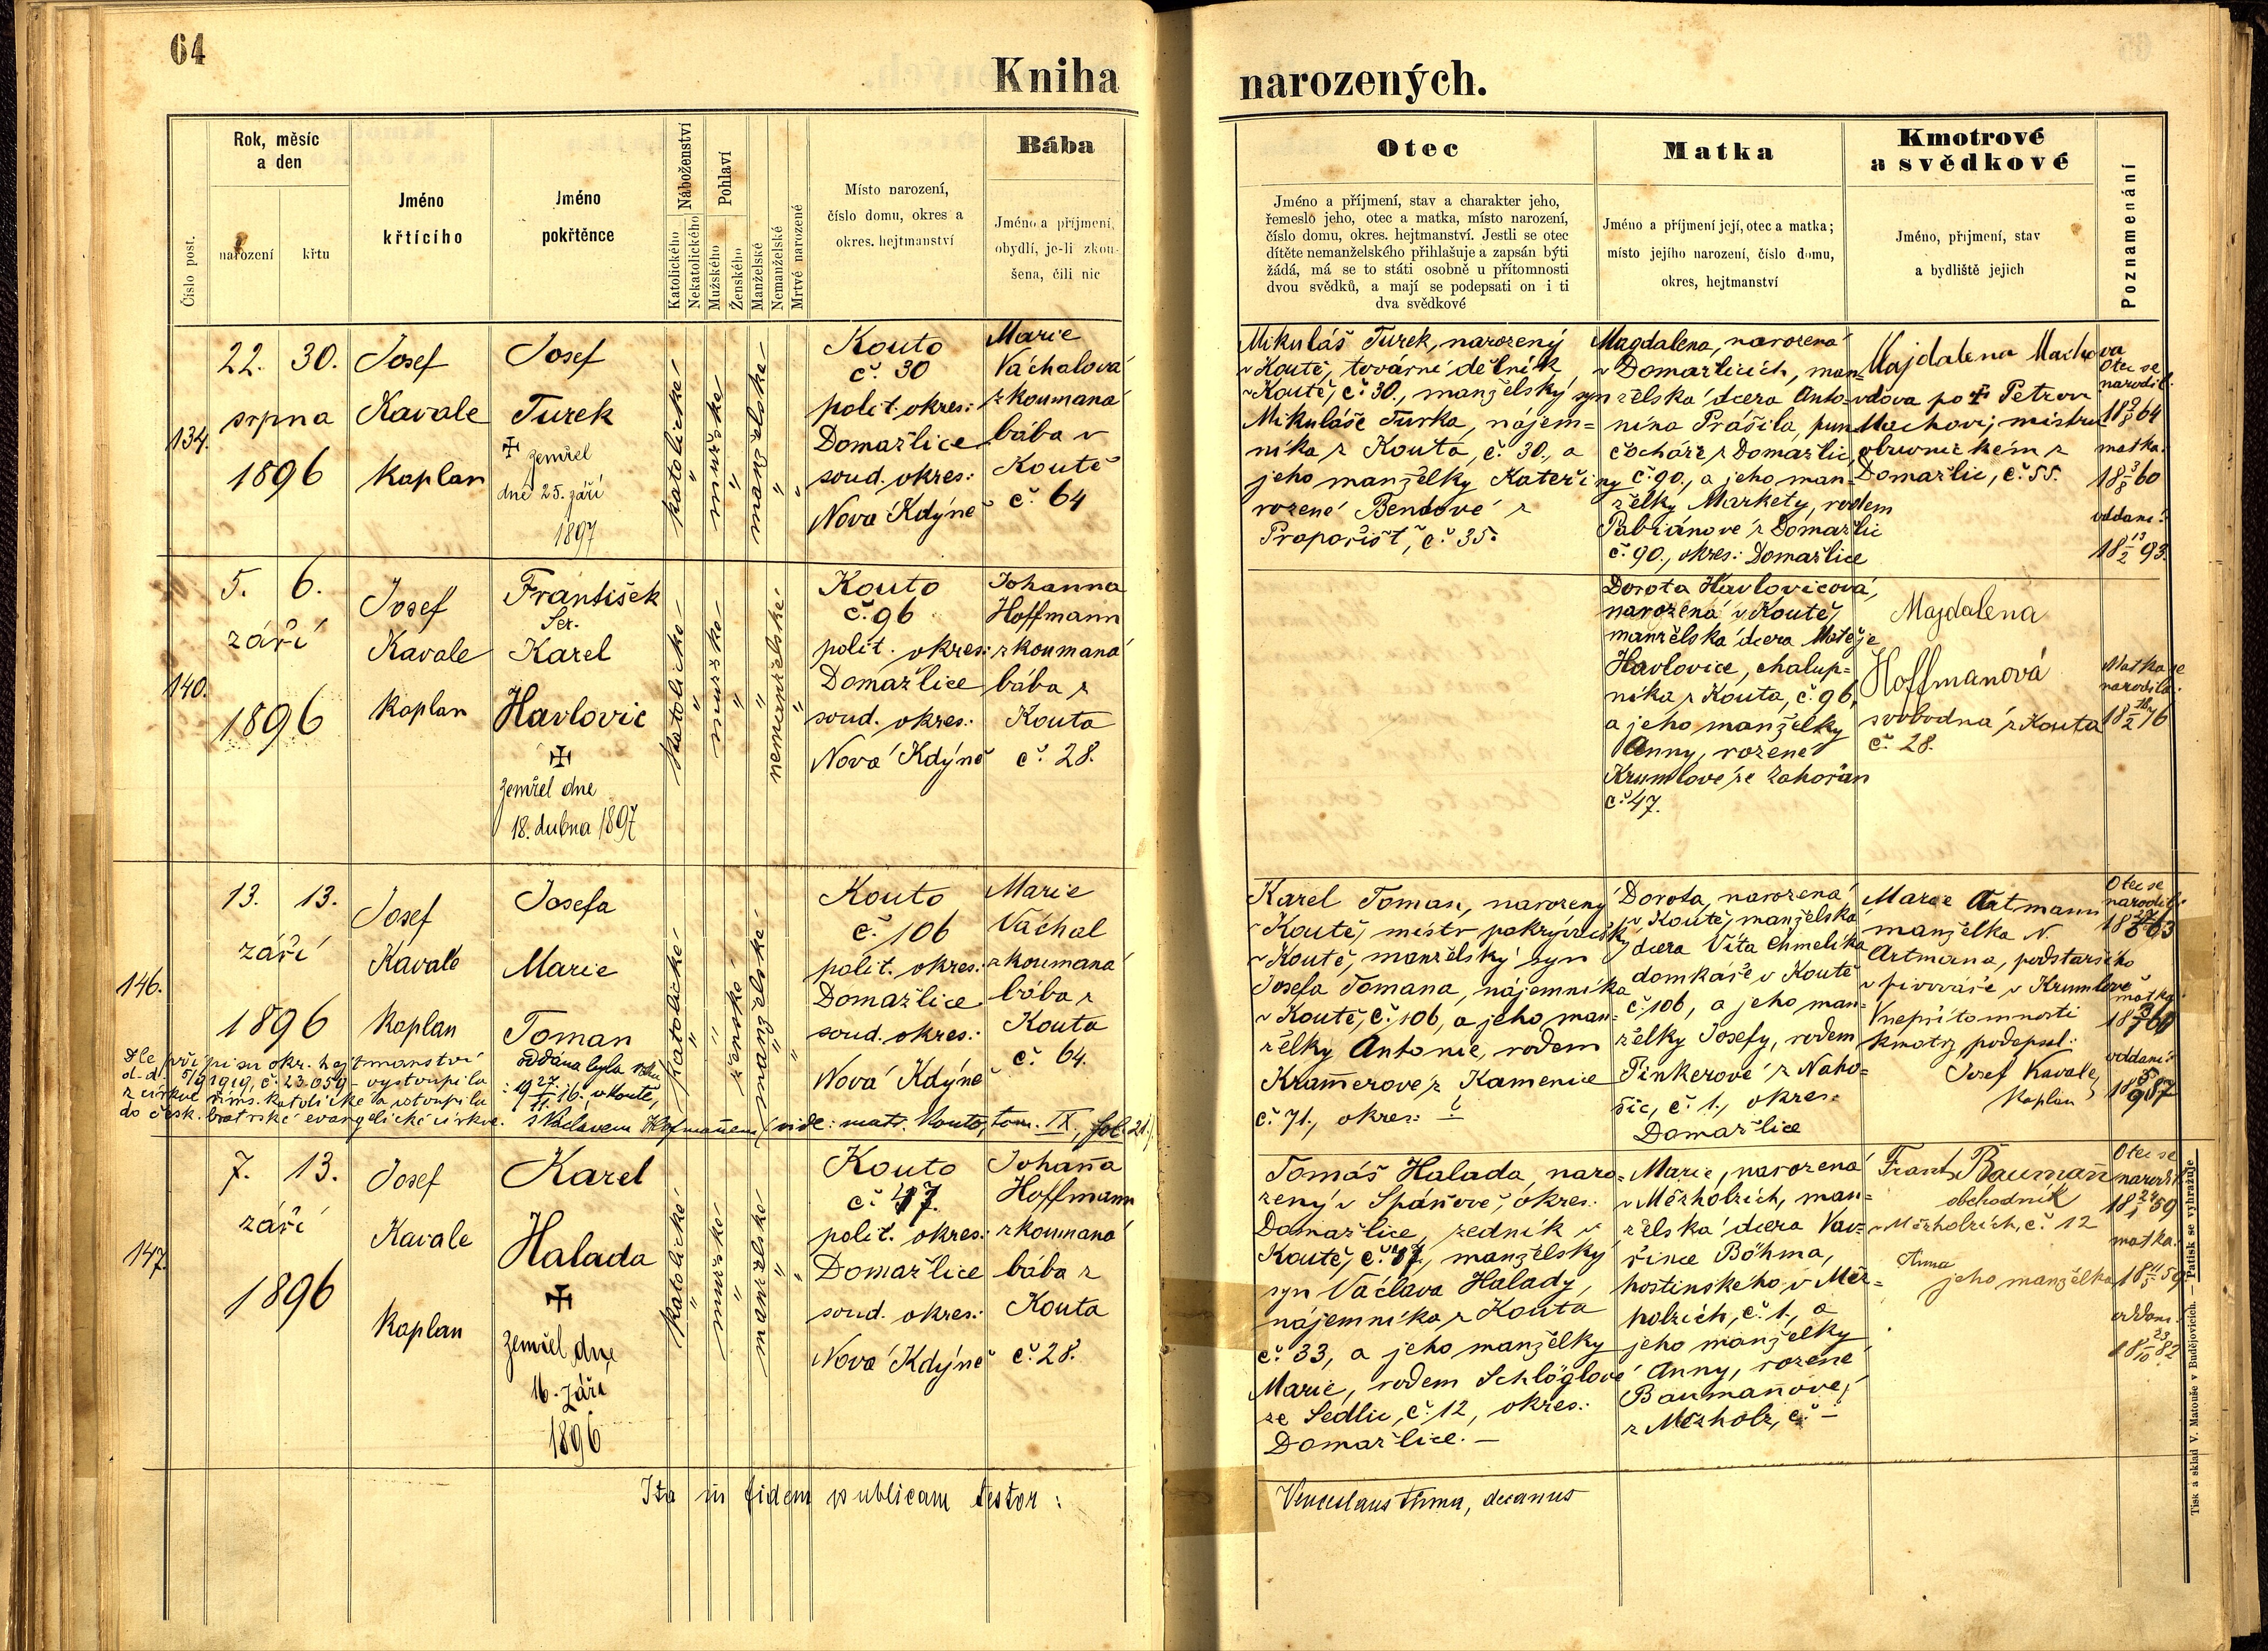 64
Kniha
narozených.
Číslo post.
Rok, měsíc
a den
narození
křtu
Jméno
křtícího
Jméno
pokřtěnce
Náboženství
Katolického
Nekatolického
Pohlaví
Mužského
Ženského
Manželské
Nemanželské
Mrtvé narozené
Místo narození,
číslo domu, okres a
okres. hejtmanství
Bába
Jméno a příjmení,
obydlí, je-li zkou-
šena, čili nic
Otec
Jméno a příjmení, stav a charakter jeho,
řemeslo jeho, otec a matka, místo narození,
číslo domu, okres. hejtmanství. Jestli se otec
dítěte nemanželského přihlašuje a zapsán býti
žádá, má se to státi osobně u přítomnosti
dvou svědků, a mají se podepsati on i ti
dva svědkové
Matka
Jméno a příjmení její, otec a matka;
místo jejího narození, číslo domu,
okres, hejtmanství
Kmotrové
a svědkové
Jméno, příjmení, stav
a bydliště jejich
Poznamenání
134.
22. 30.
srpna
1896
Josef
Kavale
Kaplan
Josef
Turek
✠ zemřel
dne 25. září
1897
katolické
"
mužské
"
manželské
"
"
Kouto
č. 30
polit. okres:
Domažlice
soud. okres:
Nová Kdýně
Marie
Váchalová
zkoumaná
bába v
Koutě
č. 64
Mikuláš Turek, narozený
v Koutě, tovární dělník
v Koutě, č. 30., manželský syn
Mikuláše Turka, nájem=
níka z Kouta, č. 30., a
jeho manželky Kateřiny
rozené Bendové z
Prapořišť, č. 35.
Magdalena, narozená
v Domažlicích, man=
želská dcera Anto-
nína Prášila, pun
čocháře z Domažlic,
č. 90., a jeho man-
želky Markety, rodem
Pabiánové z Domažlic
č. 90., okres: Domažlice
Majdalena Machova
vdova po ✠ Petrovi
Machovi, mistru
obuvnickém z
Domažlic, č. 55.
Otec se
narodil:
18 64
matka:
18 3/8 60
oddaní:
18 13/2 93.
140.
5. 6.
září
1896
Josef
Kavale
Kaplan
František
Ser.
Karel
Havlovic
✠
zemřel dne
18. dubna 1897
katolické
"
mužské
"
"
nemanželské
"
Kouto
č. 96
polit. okres:
Domažlice
soud. okres:
Nová Kdýně
Johanna
Hoffmann
zkoumaná
bába z
Kouta
č. 28.
Dorota Havlovicová,
narozená v Koutě,
manželská dcera Matěje
Havlovice, chalup=
níka z Kouta, č. 96,
a jeho manželky
Anny, rozené
Krumlové ze Zahořan
č. 47.
Majdalena
Hoffmanová
svobodná z Kouta
č. 28.
Matka se
narodila:
18 76
146.
13. 13.
září
1896
Josef
Kavale
Kaplan
Josefa
Marie
Toman
oddána byla
19 27/11 16. v Koutě,
s Václavem Hofmanem (vide: matr. Kouto, tom. IX, fol. 21.)
Dle přípisu okr. hejtmanství
d. d. 5/9 1919, č. 23.059 – vystoupila
z církve řims. katolické a vstoupila
do česk. bratrské evangelické církve.
katolické
"
"
ženské
manželské
"
"
Kouto
č. 106
polit. okres:
Domažlice
soud. okres:
Nová Kdýně
Marie
Váchal
zkoumaná
bába z
Kouta
č. 64.
Karel Toman, narozený
v Koutě, mistr pokrývačský
v Koutě, manželský syn
Josefa Tomana, nájemníka
v Koutě, č. 106, a jeho man=
želky Antonie, rodem
Kramerové z Kamenice
č. 71., okres: ?
Dorota, narozená
v Koutě, manželská
dcera Víta Chmelíka
domkáře v Koutě
č. 106, a jeho man=
želky Josefy, rodem
Pinkerové z Naho=
šic, č. 1., okres:
Domažlice
Marie Artmann
manželka N.
Artmana, podstaršího
v pivováře v Krumlově
V nepřítomnosti
kmotry podepsal:
Josef Kavale,
Kaplan
Otec se
narodil:
matka:
oddaní:
147.
7. 13.
září
1896
Josef
Kavale
Kaplan
Karel
Halada
✠
zemřel dne
16. září
1896
katolické
"
mužské
"
manželské
"
"
Kouto
č. 47.
polit. okres:
Domažlice
soud. okres:
Nová Kdýně
Johaňa
Hoffmann
zkoumaná
bába z
Kouta
č. 28.
Tomáš Halada, naro=
zený v Spáňově, okres:
Domažlice, zedník v
Koutě, č. 47., manželský
syn Václava Halady,
nájemníka z Kouta
č. 33, a jeho manželky
Marie, rodem Schlöglové
ze Sedlic, č. 12, okres:
Domažlice. –
Marie, narozená
v Měrholzích, man=
želská dcera Vav=
řince Böhma,
hostinského v Měr=
holzích, č. 1., a
jeho manželky
Anny, rozené
Baumaňové,
z Měrholz, č. –
Frant. Baumaň
obchodník
v Měrholzích, č. 12
Anna
jeho manželka
Otec se
narodil
18 24/1 59
matka:
18 59
oddaní:
18 23/10 82
Ita in fidem publicam testor:
Venceslaus Thma, decanus
Tisk a sklad V. Matouše v Budějovicích. — Patisk se vyhražuje